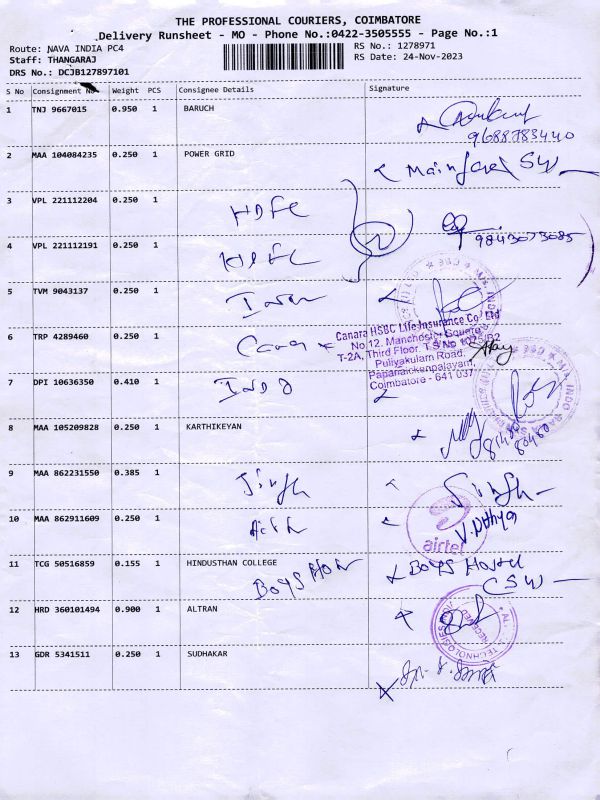 THE PROFESSIONAL COURIERS, COIMBATORE
Delivery Runsheet - MO - Phone No.:0422-3505555 - Page No.:1
Route: NAVA INDIA PC4
RS No.: 1278971
Staff: THANGARAJ
RS Date: 24-Nov-2023
DRS No.: DCJB127897101
S No Consignment No Weight PCS Consignee Details Signature
1 TNJ 9667015 0.950 1 BARUCH
9688783440
2 MAA 104084235 0.250 1 POWER GRID
3 VPL 221112204 0.250 1 HDFC
9843073085
4 VPL 221112191 0.250 1 HDFC
5 TVM 9043137 0.250 1
Canara HSBC Life Insurance Co. Ltd
6 TRP 4289460 0.250 1
No 12, Manchester Square
T-2A, Third Floor, T.S No
Puliyakulam Road,
Papanaickenpalayam,
Coimbatore - 641 037
7 DPI 10636350 0.410 1
8 MAA 105209828 0.250 1 KARTHIKEYAN
9 MAA 862231550 0.385 1 Singh Singh
10 MAA 862911609 0.250 1
airtel
11 TCG 50516859 0.155 1 HINDUSTHAN COLLEGE
Boys Hostel
12 HRD 360101494 0.900 1 ALTRAN
TECHNOLOGIES
13 GDR 5341511 0.250 1 SUDHAKAR